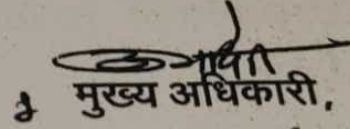 मुख्य अधिकारी,